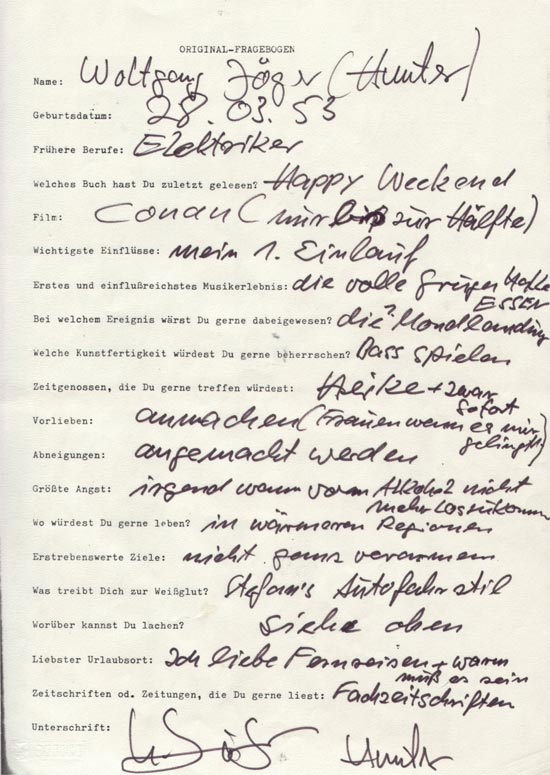 ORIGINAL-FRAGEBOGEN
Name: Wolfgang Jäger (Hunter)
Geburtsdatum: 28.03.53
Frühere Berufe: Elektriker
Welches Buch hast Du zuletzt gelesen? Happy Weekend
Film: Conan (nur bis zur Hälfte)
Wichtigste Einflüsse: mein 1. Einlauf
Erstes und einflußreichstes Musikerlebnis: die volle
ESSEN
Bei welchem Ereignis wärst Du gerne dabeigewesen? die? Mondlandung
Welche Kunstfertigkeit würdest Du gerne beherrschen? Bass spielen
Zeitgenossen, die Du gerne treffen würdest: Heike + zwar
sofort
Vorlieben: anmachen (Frauen wenn es mir
gelingt)
Abneigungen: angemacht werden
Größte Angst: irgend wann vom Alkohol nicht
mehr loszukommen
Wo würdest Du gerne leben? in wärmeren Regionen
Erstrebenswerte Ziele: nicht ganz verarmen
Was treibt Dich zur Weißglut? Stefan's Autofahrstil
Worüber kannst Du lachen? siehe oben
Liebster Urlaubsort: Ich liebe Fernreisen + warm
muß es sein
Zeitschriften od. Zeitungen, die Du gerne liest: Fachzeitschriften
Unterschrift: Hunter